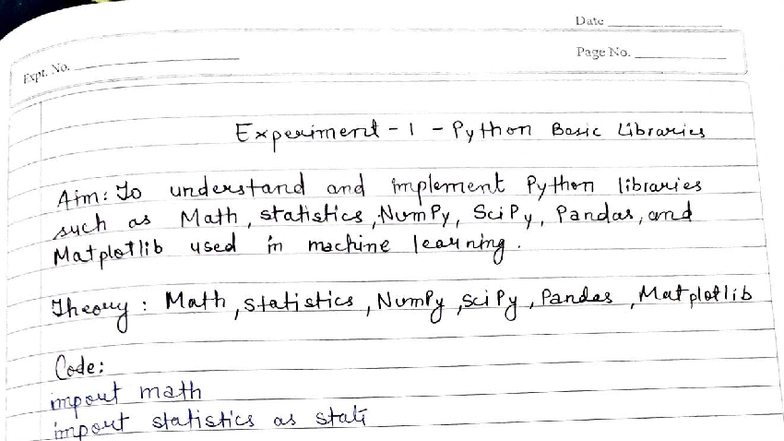 Date
Expt. No.
Page No.
Experiment - 1 - Python Basic Libraries
Aim: To understand and implement Python libraries
such as Math, statistics, NumPy, SciPy, Pandas, and
Matplotlib used in machine learning.
Theory : Math, statistics, NumPy, SciPy, Pandas, Matplotlib
Code:
import math
import statistics as stati